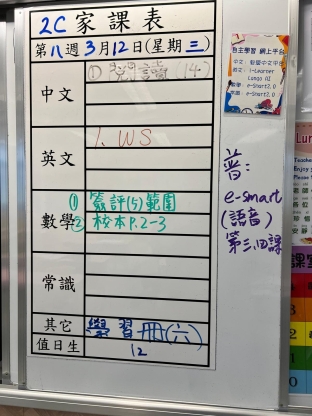 2C 家課表
第八週3月12日(星期三)
中文 ① 閱讀(14)
英文 1. WS
數學 ① 簽評(5)範圍
② 校本P.2-3
常識
其它 學習冊(六)
值日生 12
自主學習 網上平台
i-Learner
Lungo AI
e-Smart2.0
e-Smart2.0
普:
e-smart
(語音)
第三、四課